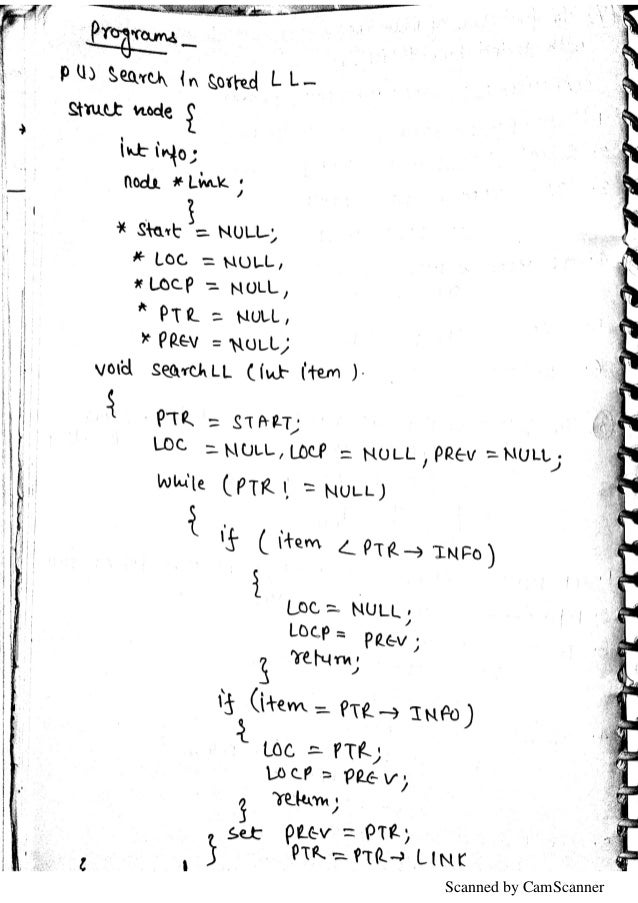 Programs -
P(1) Search in sorted LL -
struct node {
int info;
node * Link ;
}
* Start = NULL;
* LOC = NULL,
* LOCP = NULL,
* PTR = NULL,
* PREV = NULL;
void searchLL (int item ).
{
PTR = START;
LOC = NULL, LOCP = NULL, PREV = NULL;
while (PTR ! = NULL)
{
if ( item < PTR → INFO)
{
LOC = NULL;
LOCP = PREV;
return;
}
if (item = PTR → INFO)
{
LOC = PTR;
LOCP = PREV;
return;
}
set PREV = PTR;
} PTR = PTR → LINK
Scanned by CamScanner